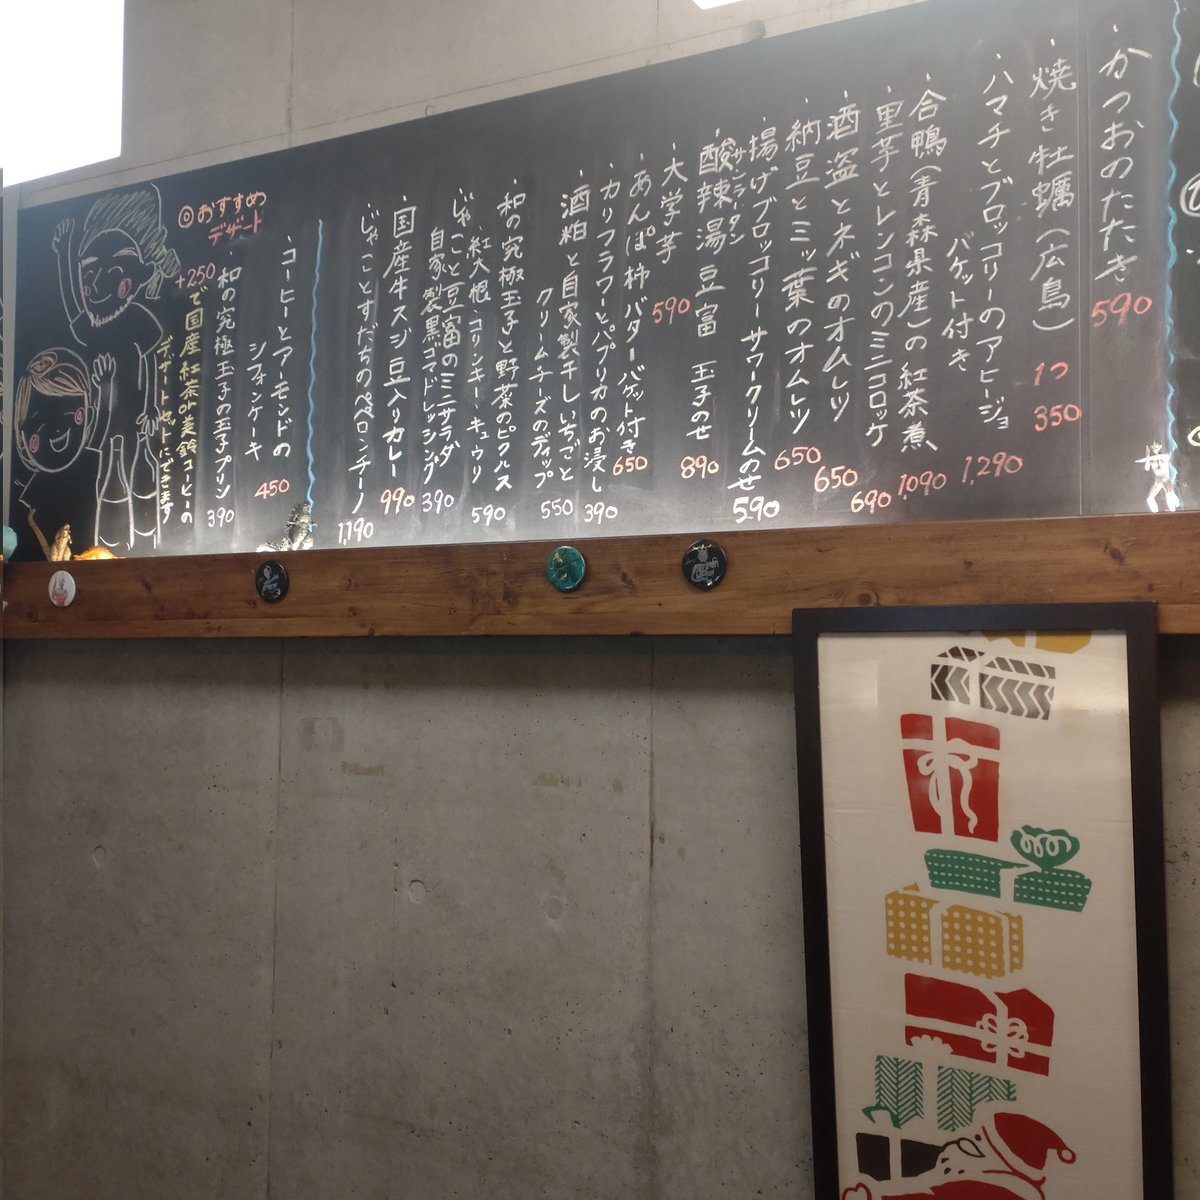 ・かつおのたたき 590
・焼き牡蠣(広島) 1つ 350
・ハマチとブロッコリーのアヒージョ
バケット付き 1,290
・合鴨(青森県産)の紅茶煮 1,090
・里芋とレンコンのミニコロッケ 690
・酒盗とネギのオムレツ 650
・納豆とミツ葉のオムレツ 650
・揚げブロッコリーサワークリームのせ 590
サンラータン
・酸辣湯豆富 玉子のせ 890
・大学芋 590
・あんぽ柿バターバケット付き 650
・カリフラワーとパプリカのお浸し 390
・酒粕と自家製干しいちごと
クリームチーズのディップ 550
・和の究極玉子と野菜のピクルス
紅大根、コリンキー、キュウリ 590
・じゃこと豆富のミニサラダ
自家製黒ゴマドレッシング 390
・国産牛スジ豆入りカレー 990
・じゃことすだちのペペロンチーノ 1,190
◎おすすめ
デザート
・コーヒーとアーモンドの
シフォンケーキ 450
・和の究極玉子の玉子プリン 390
+250で国産紅茶or美鈴コーヒーの
デザートセットにできます